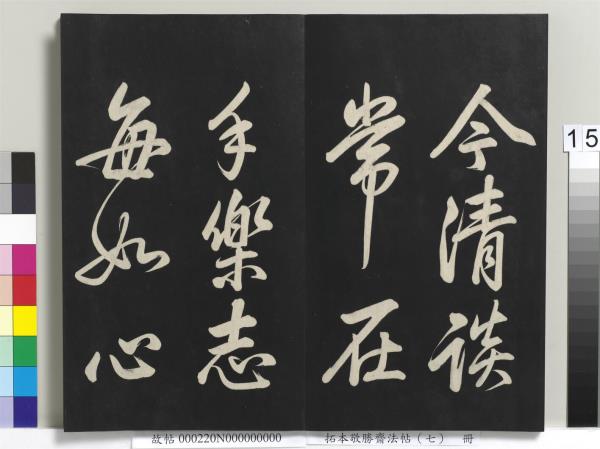 今清談
常在
手樂志
每如心
15
故帖 000220N000000000
拓本敬勝齋法帖(七) 冊